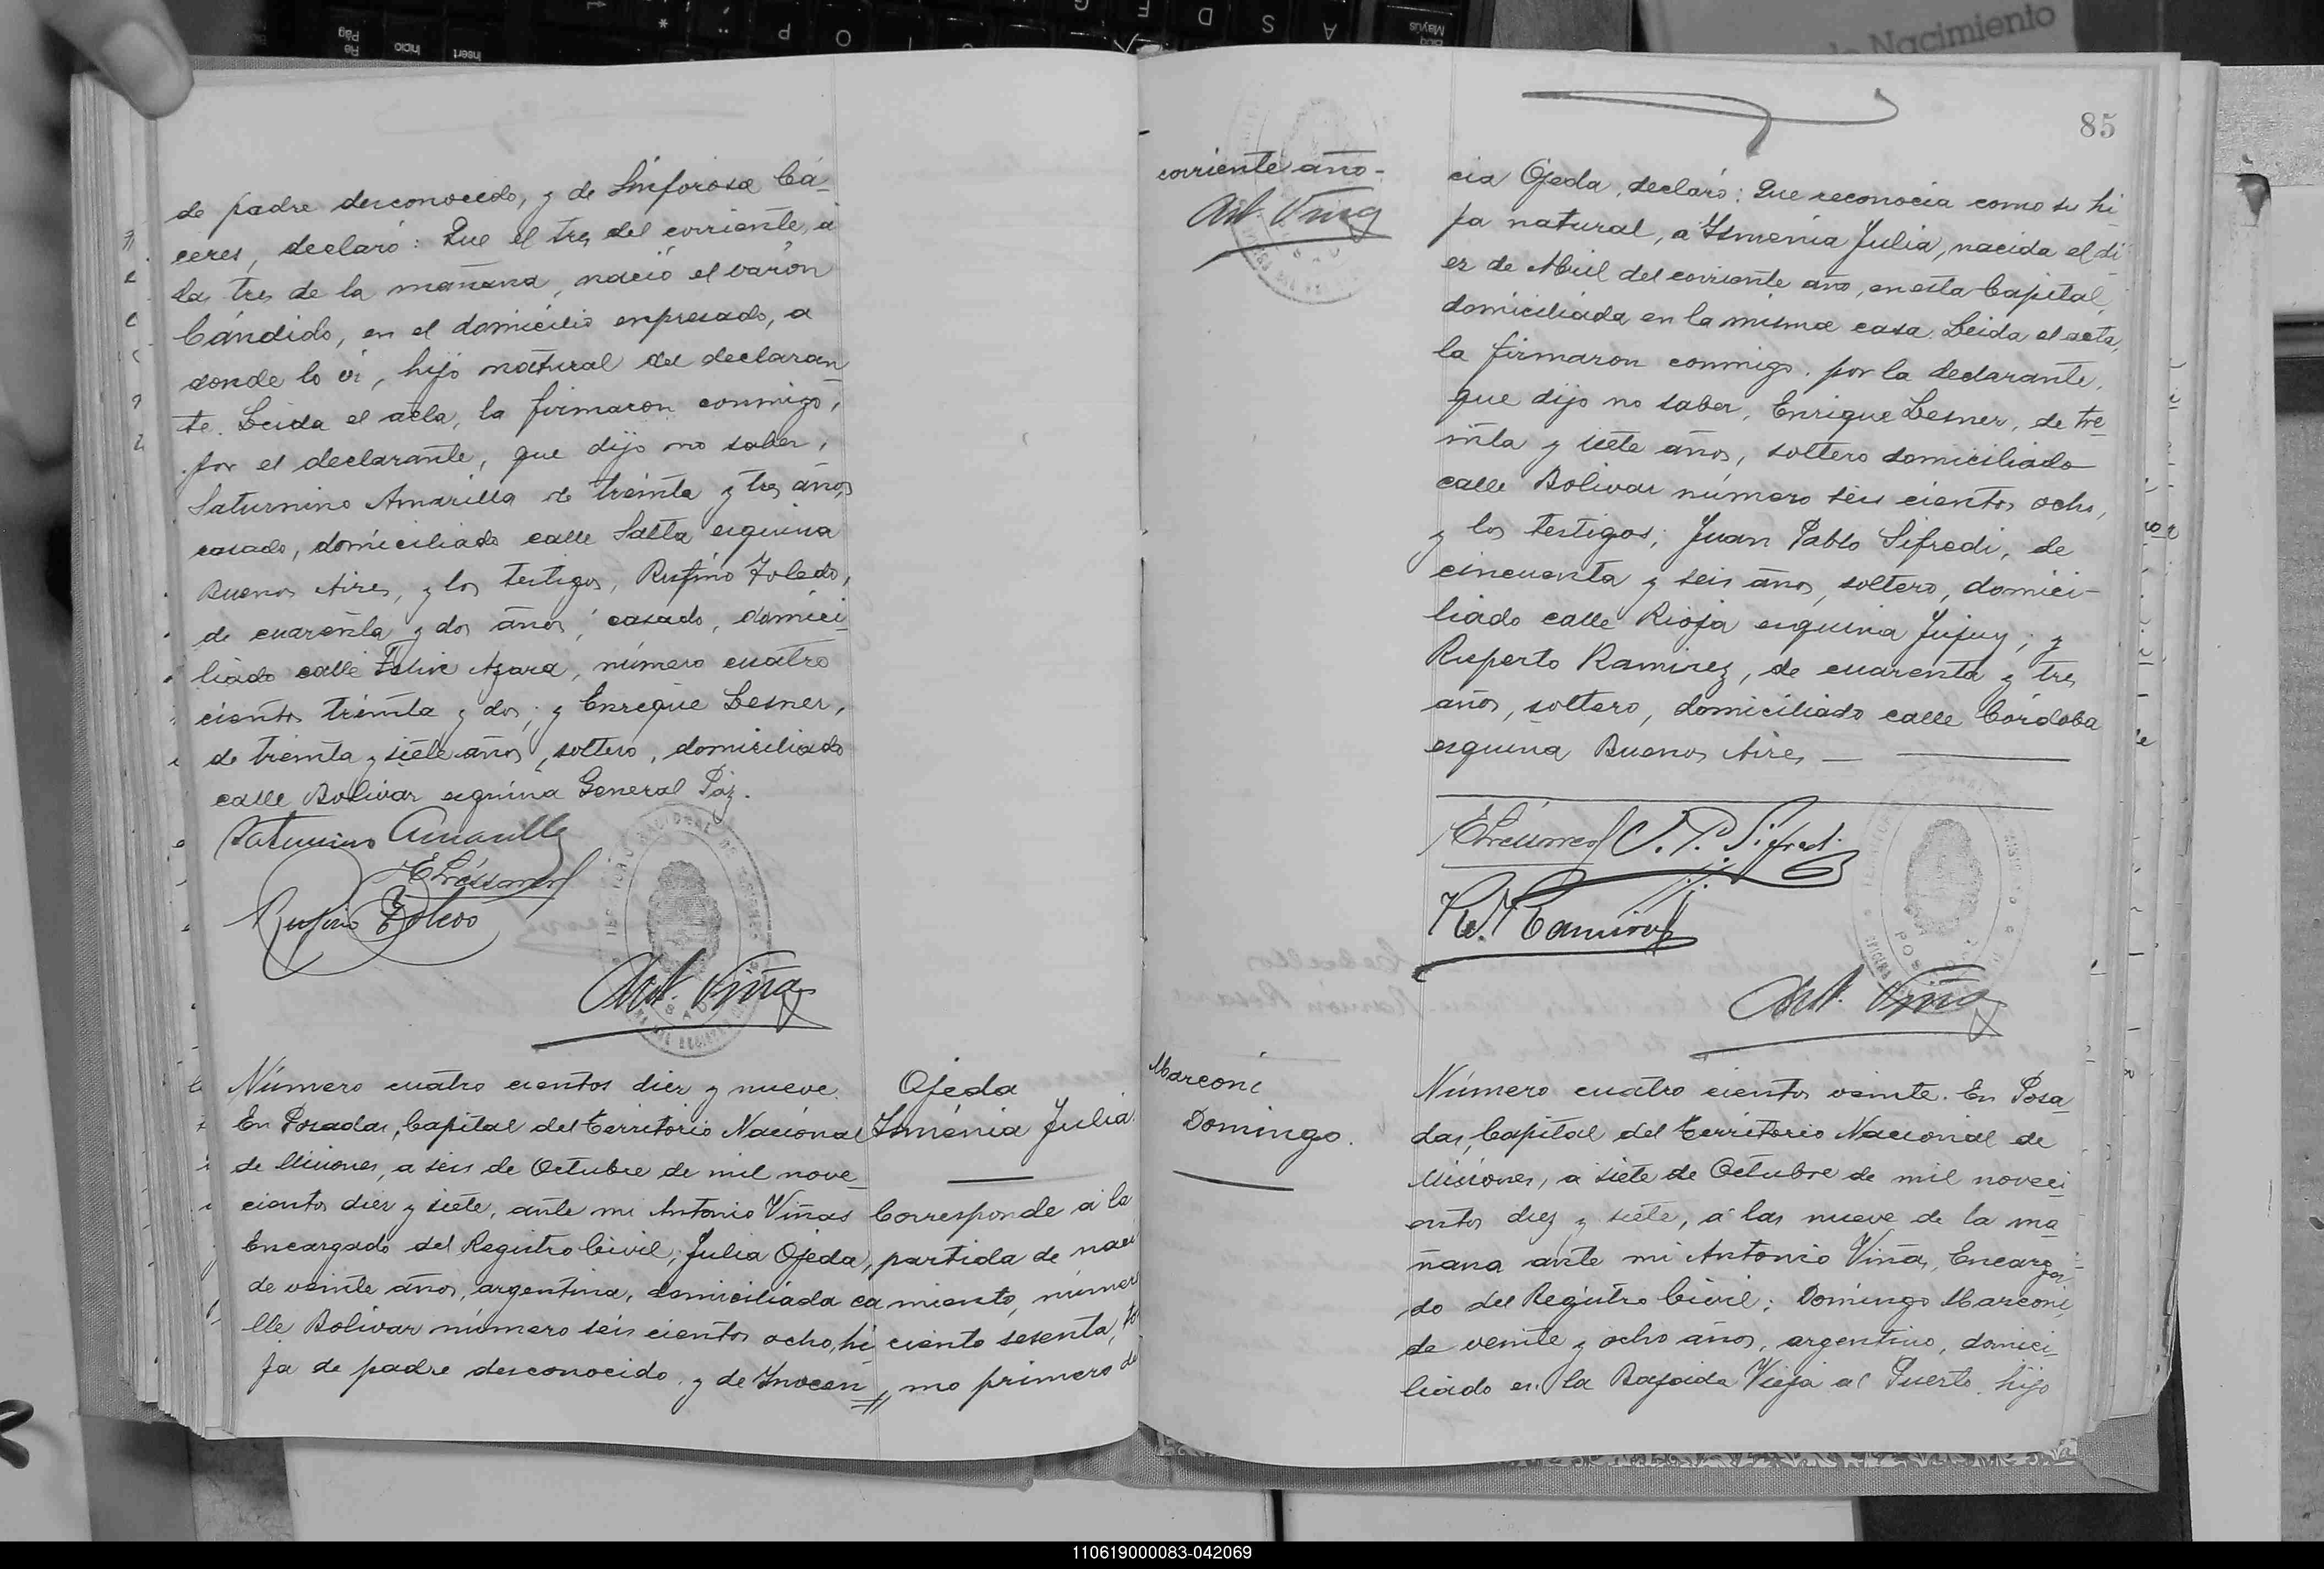 de padre desconocido, y de Sinforosa Cá-
ceres, declaró: Que el tres del corriente, a
las tres de la mañana, nació el varón
Cándido, en el domicilio expresado, a
donde lo vi, hijo natural del declaran
te. Leida el acta, la firmaron conmigo,
por el declarante, que dijo no saber,
Saturnino Amarilla de treinta y tres años,
casado, domiciliado calle Salta esquina
Buenos Aires, y los testigos, Rufino Toledo,
de cuarenta y dos años, casado, domici-
liado calle Felix Azara, número cuatro
cientos treinta y dos; y Enrique Lesner,
de treinta y siete años, soltero, domiciliado
calle Bolivar esquina General Paz.
Saturnino Amarilla
Rufino Toledo
Ant. Viña
Número cuatro cientos diez y nueve.
En Posadas, Capital del Territorio Nacional
de Misiones, a seis de Octubre de mil nove-
cientos diez y siete, ante mi Antonio Viñas
Encargado del Registro Civil; Julia Ojeda,
de veinte años, argentina, domiciliada ca
lle Bolivar número seis cientos ocho, hi
ja de padre desconocido, y de Inocen
Ojeda
Isménia Julia.
Corresponde a la
partida de naci
miento, número
ciento sesenta, to
mo primero del
85
corriente año-
Ant. Viña
cia Ojeda, declaró: Que reconocia como su hi
ja natural, a Isménia Julia, nacida el di
ez de Abril del corriente año, en esta Capital,
domiciliada en la misma casa. Leida el acta,
la firmaron conmigo, por la declarante,
que dijo no saber, Enrique Lesner, de tre-
inta y siete años, soltero domiciliado
calle Bolivar número seis cientos ocho,
y los testigos; Juan Pablo Sifredi, de
cincuenta y seis años, soltero, domici-
liado calle Rioja esquina Jujuy; y
Ruperto Ramirez, de cuarenta y tres
años, soltero, domiciliado calle Córdoba
esquina Buenos Aires,—
J. P. Sifredi
R. Ramirez
Ant. Viña
Marconi
Domingo.
Número cuatro cientos veinte. En Posa
das, Capital del Territorio Nacional de
Misiones, a siete de Octubre de mil noveci-
entos diez y siete, a las nueve de la ma
ñana ante mi Antonio Viña, Encarga-
do del Registro Civil; Domingo Marconi,
de veinte y ocho años, argentino, domici-
liado en la Bajada Vieja al Puerto, hijo
110619000083-042069